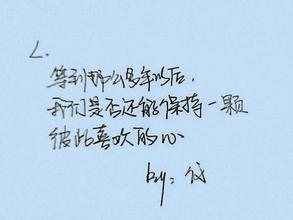 L.
等到那么多年以后,
我们是否还能保持一颗
彼此喜欢的心
by:付